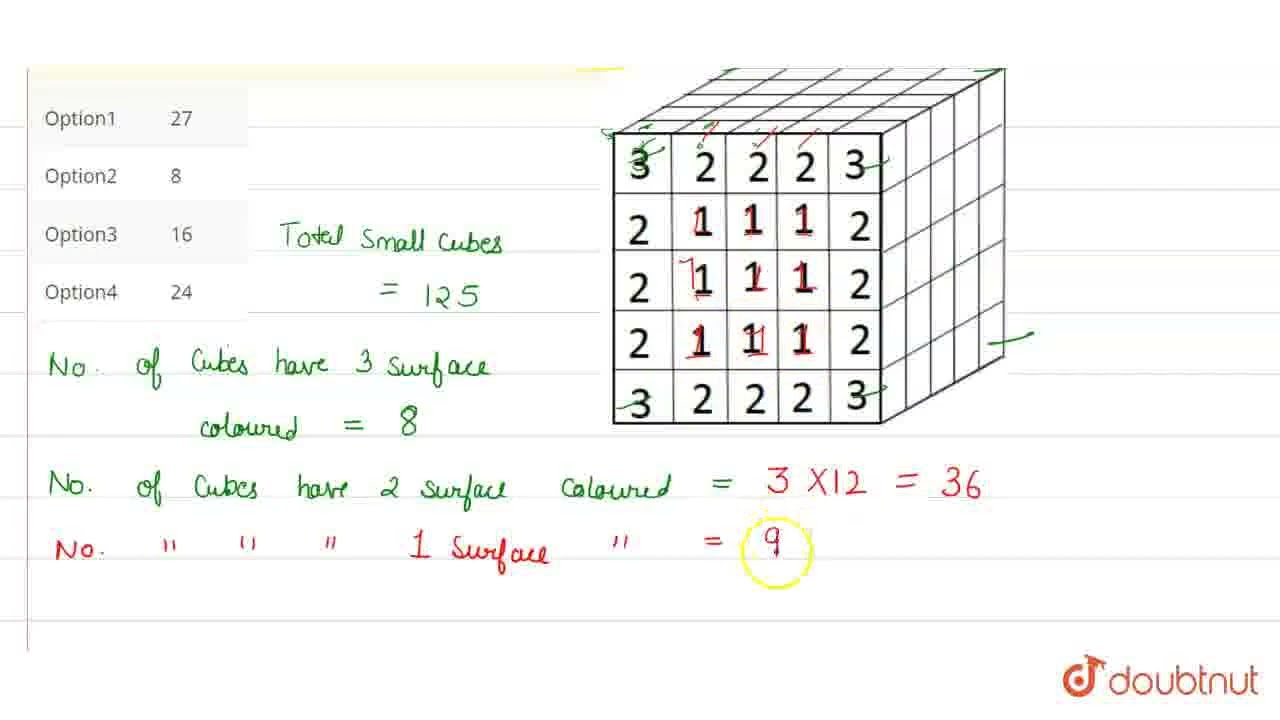 Option1 27
Option2 8
Option3 16
Option4 24
Total Small Cubes
= 125
No. of Cubes have 3 Surface
coloured = 8
No. of Cubes have 2 Surface coloured = 3 X 12 = 36
No. " " " 1 Surface " = 9
3 2 2 2 3
2 1 1 1 2
2 1 1 1 2
2 1 1 1 2
3 2 2 2 3
doubtnut